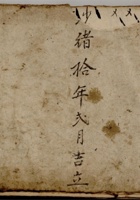 光緒拾年弍月吉立